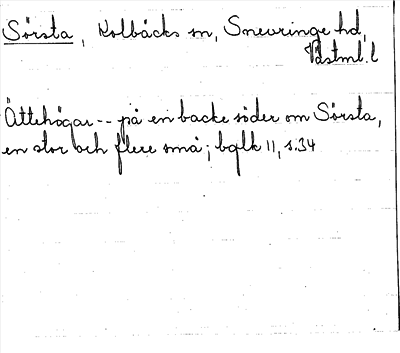 Sörsta, Kolbäcks sn, Snevringe hd,
Västml. l
Ättehögar -- på en backe söder om Sörsta,
en stor och flere små; bqlk 11, s. 34